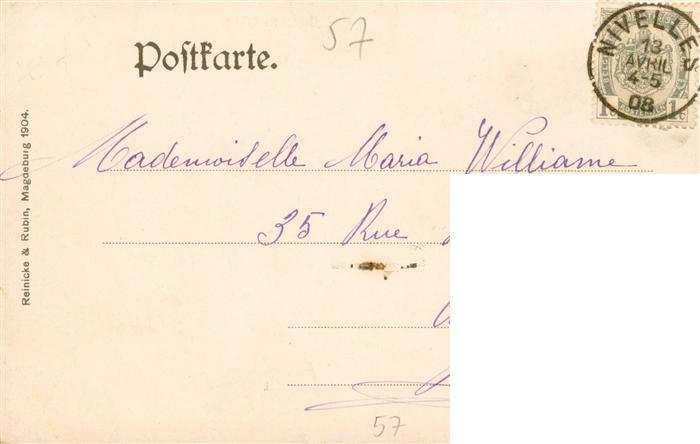 57
Postkarte.
NIVELLES
13
AVRIL
4-5
08
1c 1c
Mademoiselle Maria Williame
35 Rue
Reinicke & Rubin, Magdeburg 1904.
57